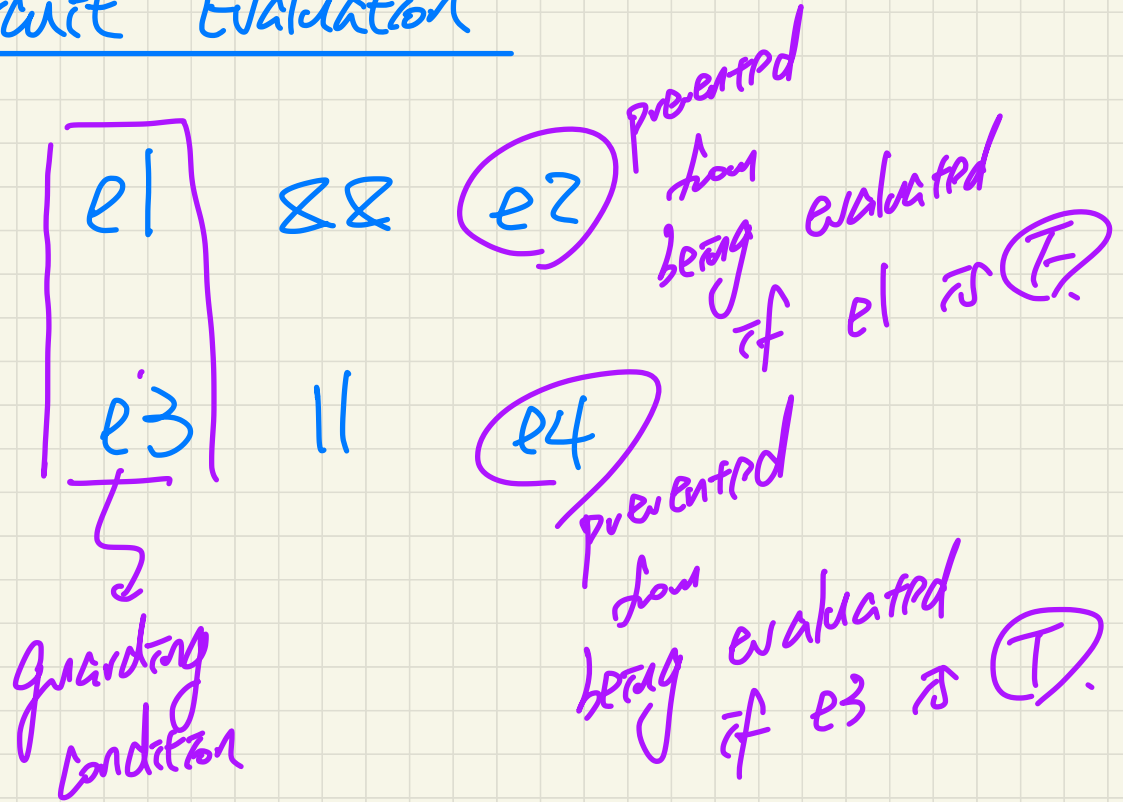 Evaluation
e1 && e2
prevented
from
being evaluated
if e1 is F.
e3 || e4
prevented
from
being evaluated
if e3 is T.
guarding
condition